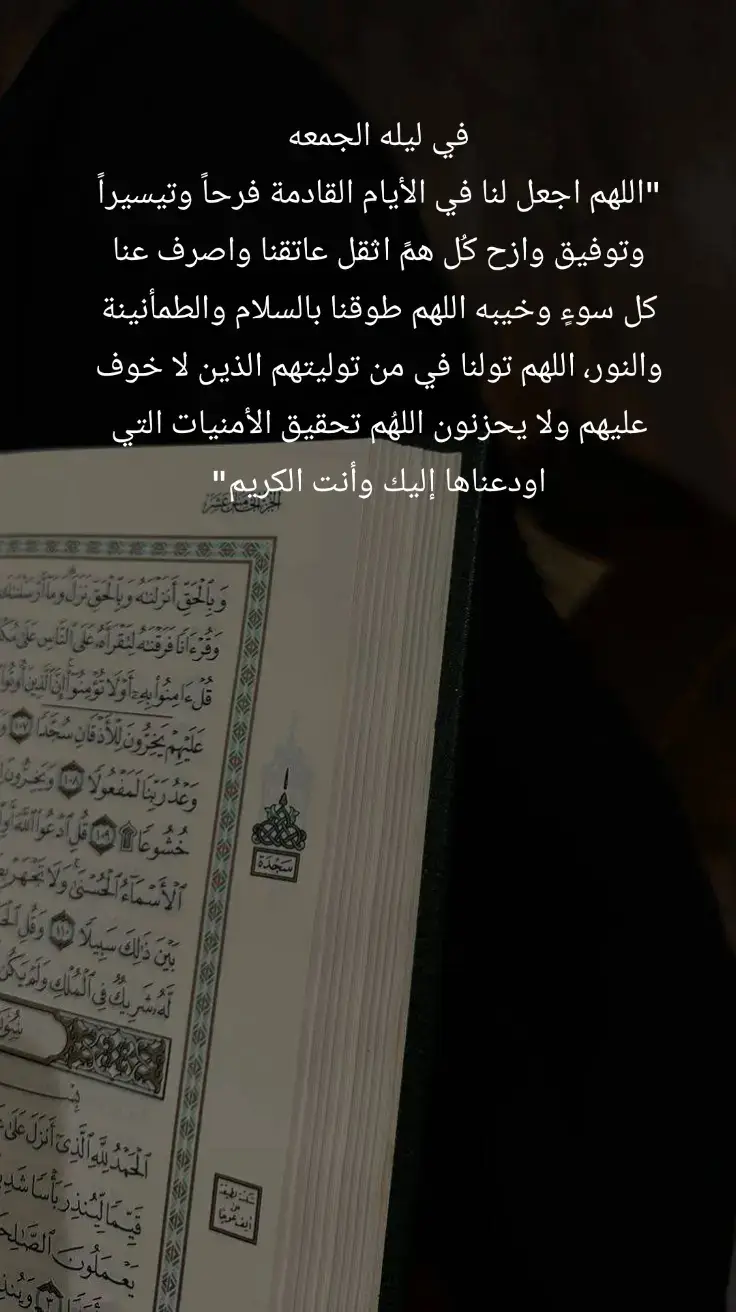 في ليله الجمعه
"اللهم اجعل لنا في الأيام القادمة فرحاً وتيسيراً
وتوفيق وازح كُل همً اثقل عاتقنا واصرف عنا
كل سوءٍ وخيبه اللهم طوقنا بالسلام والطمأنينة
والنور، اللهم تولنا في من توليتهم الذين لا خوف
عليهم ولا يحزنون اللهُم تحقيق الأمنيات التي
اودعناها إليك وأنت الكريم"
وَبِٱلْحَقِّ أَنزَلْنَٰهُ وَبِٱلْحَقِّ نَزَلَ وَمَآ أَرْسَلْنَٰكَ
وَقُرْءَانًا فَرَقْنَٰهُ لِتَقْرَأَهُۥ عَلَى ٱلنَّاسِ عَلَىٰ
قُلْ ءَامِنُوا۟ بِهِۦٓ أَوْ لَا تُؤْمِنُوٓا۟ إِنَّ ٱلَّذِينَ أُوتُوا۟
عَلَيْهِمْ يَخِرُّونَ لِلْأَذْقَانِ سُجَّدًا ١٠٧
وَعْدُ رَبِّنَا لَمَفْعُولًا ١٠٨ وَيَخِرُّونَ
خُشُوعًا ۩ ١٠٩ قُلِ ٱدْعُوا۟ ٱللَّهَ أَوِ
ٱلْأَسْمَآءُ ٱلْحُسْنَىٰ وَلَا تَجْهَرْ
بَيْنَ ذَٰلِكَ سَبِيلًا ١١٠ وَقُلِ
لَّهُۥ شَرِيكٌ فِى ٱلْمُلْكِ وَلَمْ يَكُن
سَجْدَة
ٱلْحَمْدُ لِلَّهِ ٱلَّذِىٓ أَنزَلَ عَلَىٰ
قَيِّمًا لِّيُنذِرَ بَأْسًا
يَعْمَلُونَ